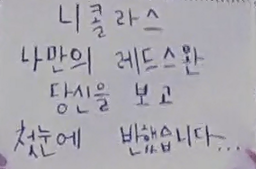 니콜라스
나만의 레드스완
당신을 보고
첫눈에 반했습니다...